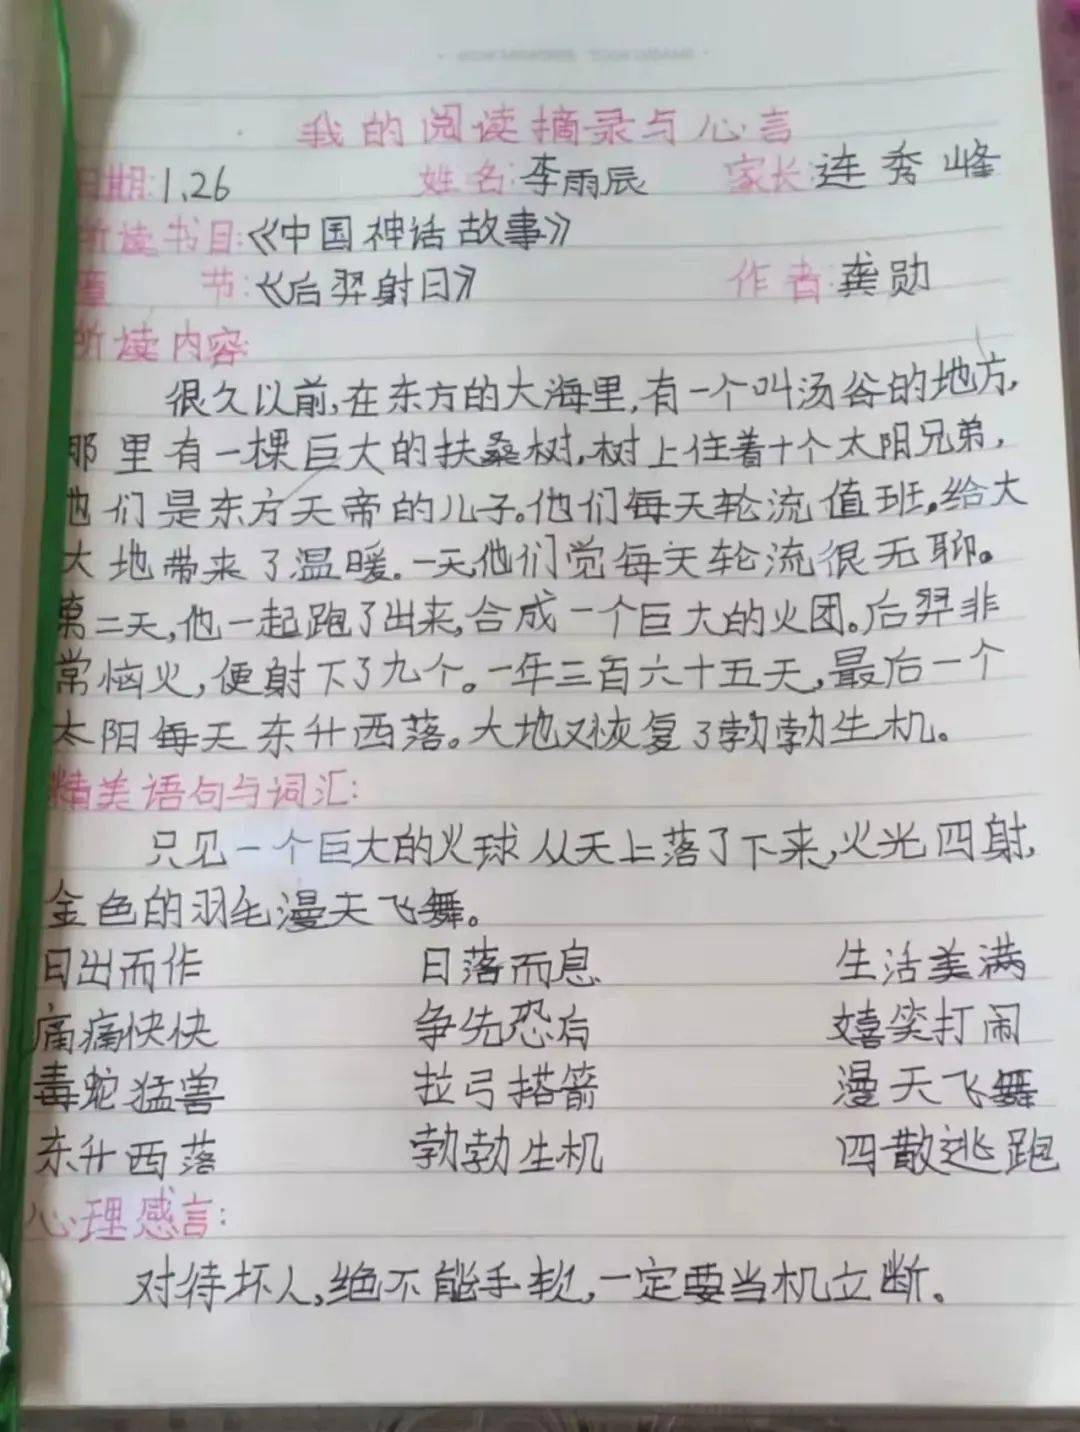 我的阅读摘录与心言
日期:1.26 姓名:李雨辰 家长:连秀峰
所读书目:《中国神话故事》
章 节:《后羿射日》 作者:龚勋
所读内容:
很久以前,在东方的大海里,有一个叫汤谷的地方,
那里有一棵巨大的扶桑树,树上住着十个太阳兄弟,
他们是东方天帝的儿子。他们每天轮流值班。给大
大地带来了温暖。一天他们觉每天轮流很无聊。
第二天,他一起跑了出来,合成一个巨大的火团。后羿非
常恼火,便射下了九个。一年三百六十五天,最后一个
太阳每天东升西落。大地又恢复了勃勃生机。
精美语句与词汇:
只见一个巨大的火球从天上落了下来,火光四射,
金色的羽毛漫天飞舞。
日出而作 日落而息 生活美满
痛痛快快 争先恐后 嬉笑打闹
毒蛇猛兽 拉弓搭箭 漫天飞舞
东升西落 勃勃生机 四散逃跑
心理感言:
对待坏人,绝不能手软,一定要当机立断。